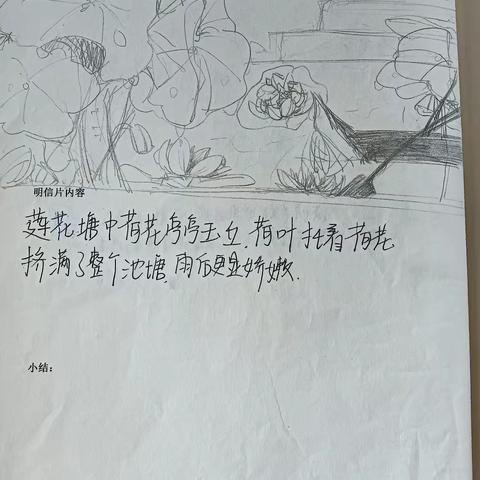 明信片内容
莲花塘中荷花亭亭玉立,荷叶托着荷花
挤满了整个池塘,雨后更显娇嫩.
小结: